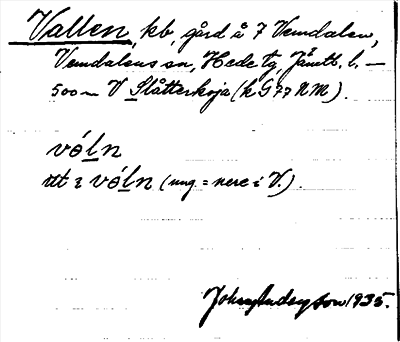 Vallen, kb, gård å 7 Vemdalen,
Vemdalens sn, Hede tg, Jämtl. l. —
500 m V Slåtterkoja (k G 77 N M).
vóln
ritt i vóln (ung. = nere i V.).
John Anderson 1935.